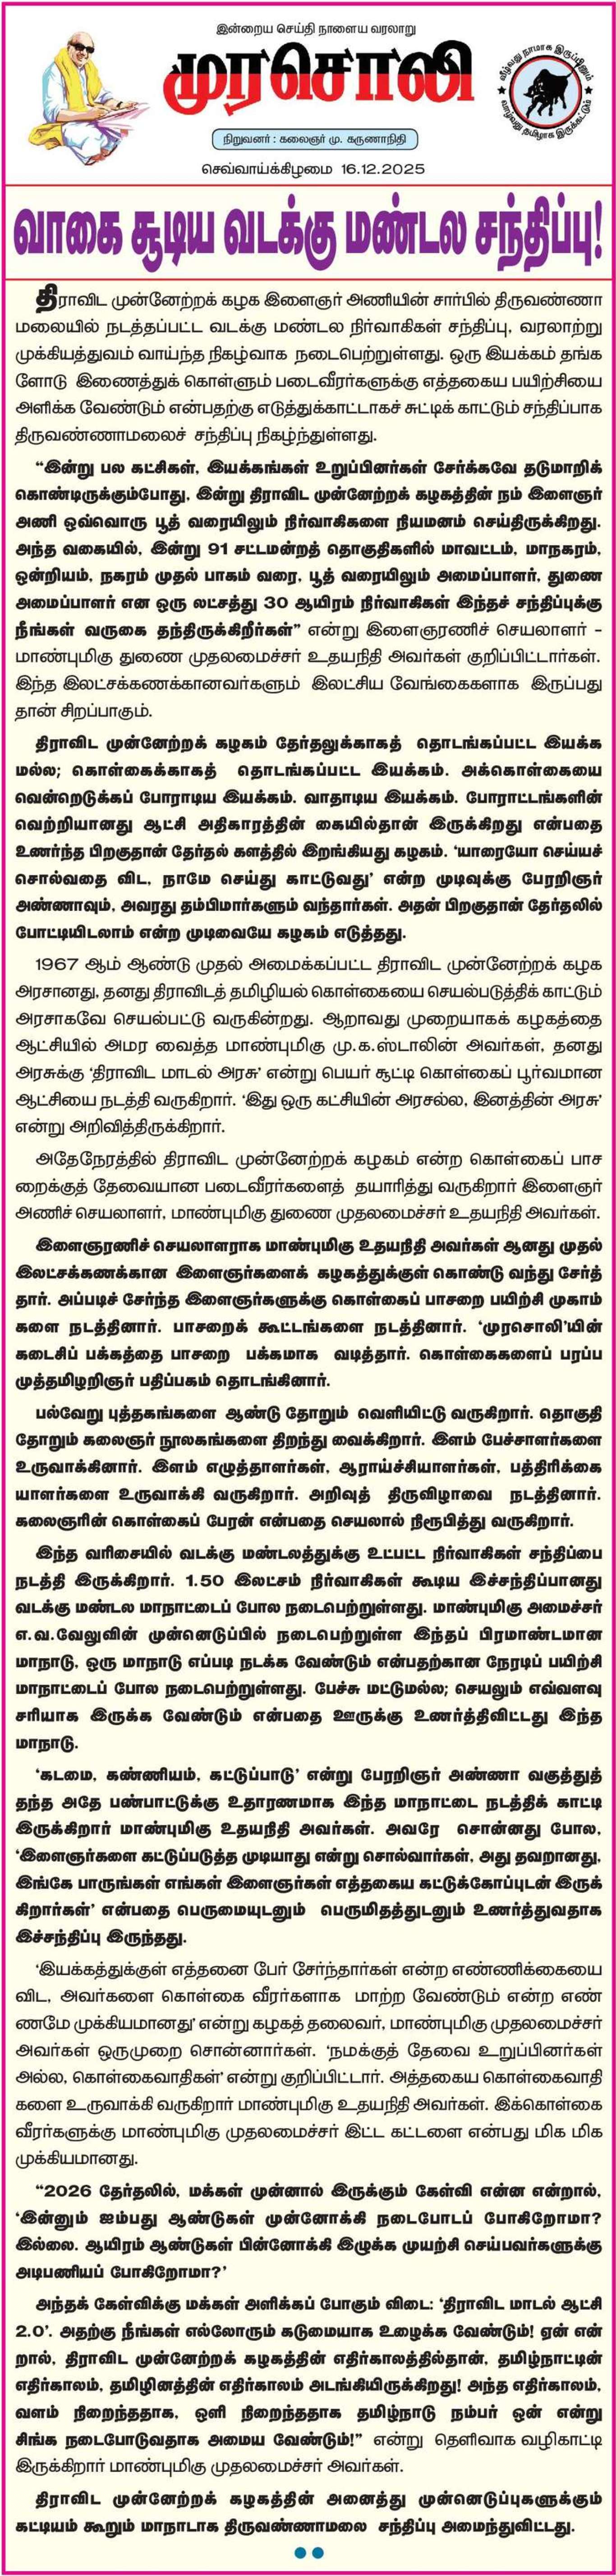 இன்றைய செய்தி நாளைய வரலாறு
முரசொலி
வீழ்வது நாமாக இருப்பினும்
வாழ்வது தமிழாக இருக்கட்டும்
நிறுவனர் : கலைஞர் மு. கருணாநிதி
செவ்வாய்க்கிழமை 16.12.2025
வாகை சூடிய வடக்கு மண்டல சந்திப்பு!
திராவிட முன்னேற்றக் கழக இளைஞர் அணியின் சார்பில் திருவண்ணா
மலையில் நடத்தப்பட்ட வடக்கு மண்டல நிர்வாகிகள் சந்திப்பு, வரலாற்று
முக்கியத்துவம் வாய்ந்த நிகழ்வாக நடைபெற்றுள்ளது. ஒரு இயக்கம் தங்க
ளோடு இணைத்துக் கொள்ளும் படைவீரர்களுக்கு எத்தகைய பயிற்சியை
அளிக்க வேண்டும் என்பதற்கு எடுத்துக்காட்டாகச் சுட்டிக் காட்டும் சந்திப்பாக
திருவண்ணாமலைச் சந்திப்பு நிகழ்ந்துள்ளது.
“இன்று பல கட்சிகள், இயக்கங்கள் உறுப்பினர்கள் சேர்க்கவே தடுமாறிக்
கொண்டிருக்கும்போது, இன்று திராவிட முன்னேற்றக் கழகத்தின் நம் இளைஞர்
அணி ஒவ்வொரு பூத் வரையிலும் நிர்வாகிகளை நியமனம் செய்திருக்கிறது.
அந்த வகையில், இன்று 91 சட்டமன்றத் தொகுதிகளில் மாவட்டம், மாநகரம்,
ஒன்றியம், நகரம் முதல் பாகம் வரை, பூத் வரையிலும் அமைப்பாளர், துணை
அமைப்பாளர் என ஒரு லட்சத்து 30 ஆயிரம் நிர்வாகிகள் இந்தச் சந்திப்புக்கு
நீங்கள் வருகை தந்திருக்கிறீர்கள்” என்று இளைஞரணிச் செயலாளர் –
மாண்புமிகு துணை முதலமைச்சர் உதயநிதி அவர்கள் குறிப்பிட்டார்கள்.
இந்த இலட்சக்கணக்கானவர்களும் இலட்சிய வேங்கைகளாக இருப்பது
தான் சிறப்பாகும்.
திராவிட முன்னேற்றக் கழகம் தேர்தலுக்காகத் தொடங்கப்பட்ட இயக்க
மல்ல; கொள்கைக்காகத் தொடங்கப்பட்ட இயக்கம். அக்கொள்கையை
வென்றெடுக்கப் போராடிய இயக்கம். வாதாடிய இயக்கம். போராட்டங்களின்
வெற்றியானது ஆட்சி அதிகாரத்தின் கையில்தான் இருக்கிறது என்பதை
உணர்ந்த பிறகுதான் தேர்தல் களத்தில் இறங்கியது கழகம். ‘யாரையோ செய்யச்
சொல்வதை விட, நாமே செய்து காட்டுவது’ என்ற முடிவுக்கு பேரறிஞர்
அண்ணாவும், அவரது தம்பிமார்களும் வந்தார்கள். அதன் பிறகுதான் தேர்தலில்
போட்டியிடலாம் என்ற முடிவையே கழகம் எடுத்தது.
1967 ஆம் ஆண்டு முதல் அமைக்கப்பட்ட திராவிட முன்னேற்றக் கழக
அரசானது, தனது திராவிடத் தமிழியல் கொள்கையை செயல்படுத்திக் காட்டும்
அரசாகவே செயல்பட்டு வருகின்றது. ஆறாவது முறையாகக் கழகத்தை
ஆட்சியில் அமர வைத்த மாண்புமிகு மு.க.ஸ்டாலின் அவர்கள், தனது
அரசுக்கு ‘திராவிட மாடல் அரசு’ என்று பெயர் சூட்டி கொள்கைப் பூர்வமான
ஆட்சியை நடத்தி வருகிறார். ‘இது ஒரு கட்சியின் அரசல்ல, இனத்தின் அரசு’
என்று அறிவித்திருக்கிறார்.
அதேநேரத்தில் திராவிட முன்னேற்றக் கழகம் என்ற கொள்கைப் பாச
றைக்குத் தேவையான படைவீரர்களைத் தயாரித்து வருகிறார் இளைஞர்
அணிச் செயலாளர், மாண்புமிகு துணை முதலமைச்சர் உதயநிதி அவர்கள்.
இளைஞரணிச் செயலாளராக மாண்புமிகு உதயநிதி அவர்கள் ஆனது முதல்
இலட்சக்கணக்கான இளைஞர்களைக் கழகத்துக்குள் கொண்டு வந்து சேர்த்
தார். அப்படிச் சேர்ந்த இளைஞர்களுக்கு கொள்கைப் பாசறை பயிற்சி முகாம்
களை நடத்தினார். பாசறைக் கூட்டங்களை நடத்தினார். ‘முரசொலி’யின்
கடைசிப் பக்கத்தை பாசறை பக்கமாக வடித்தார். கொள்கைகளைப் பரப்ப
முத்தமிழறிஞர் பதிப்பகம் தொடங்கினார்.
பல்வேறு புத்தகங்களை ஆண்டு தோறும் வெளியிட்டு வருகிறார். தொகுதி
தோறும் கலைஞர் நூலகங்களை திறந்து வைக்கிறார். இளம் பேச்சாளர்களை
உருவாக்கினார். இளம் எழுத்தாளர்கள், ஆராய்ச்சியாளர்கள், பத்திரிக்கை
யாளர்களை உருவாக்கி வருகிறார். அறிவுத் திருவிழாவை நடத்தினார்.
கலைஞரின் கொள்கைப் பேரன் என்பதை செயலால் நிரூபித்து வருகிறார்.
இந்த வரிசையில் வடக்கு மண்டலத்துக்கு உட்பட்ட நிர்வாகிகள் சந்திப்பை
நடத்தி இருக்கிறார். 1.50 இலட்சம் நிர்வாகிகள் கூடிய இச்சந்திப்பானது
வடக்கு மண்டல மாநாட்டைப் போல நடைபெற்றுள்ளது. மாண்புமிகு அமைச்சர்
எ.வ.வேலுவின் முன்னெடுப்பில் நடைபெற்றுள்ள இந்தப் பிரமாண்டமான
மாநாடு, ஒரு மாநாடு எப்படி நடக்க வேண்டும் என்பதற்கான நேரடிப் பயிற்சி
மாநாட்டைப் போல நடைபெற்றுள்ளது. பேச்சு மட்டுமல்ல; செயலும் எவ்வளவு
சரியாக இருக்க வேண்டும் என்பதை ஊருக்கு உணர்த்திவிட்டது இந்த
மாநாடு.
‘கடமை, கண்ணியம், கட்டுப்பாடு’ என்று பேரறிஞர் அண்ணா வகுத்துத்
தந்த அதே பண்பாட்டுக்கு உதாரணமாக இந்த மாநாட்டை நடத்திக் காட்டி
இருக்கிறார் மாண்புமிகு உதயநிதி அவர்கள். அவரே சொன்னது போல,
‘இளைஞர்களை கட்டுப்படுத்த முடியாது என்று சொல்வார்கள், அது தவறானது,
இங்கே பாருங்கள் எங்கள் இளைஞர்கள் எத்தகைய கட்டுக்கோப்புடன் இருக்
கிறார்கள்’ என்பதை பெருமையுடனும் பெருமிதத்துடனும் உணர்த்துவதாக
இச்சந்திப்பு இருந்தது.
‘இயக்கத்துக்குள் எத்தனை பேர் சேர்ந்தார்கள் என்ற எண்ணிக்கையை
விட, அவர்களை கொள்கை வீரர்களாக மாற்ற வேண்டும் என்ற எண்
ணமே முக்கியமானது’ என்று கழகத் தலைவர், மாண்புமிகு முதலமைச்சர்
அவர்கள் ஒருமுறை சொன்னார்கள். ‘நமக்குத் தேவை உறுப்பினர்கள்
அல்ல, கொள்கைவாதிகள்’ என்று குறிப்பிட்டார். அத்தகைய கொள்கைவாதி
களை உருவாக்கி வருகிறார் மாண்புமிகு உதயநிதி அவர்கள். இக்கொள்கை
வீரர்களுக்கு மாண்புமிகு முதலமைச்சர் இட்ட கட்டளை என்பது மிக மிக
முக்கியமானது.
“2026 தேர்தலில், மக்கள் முன்னால் இருக்கும் கேள்வி என்ன என்றால்,
‘இன்னும் ஐம்பது ஆண்டுகள் முன்னோக்கி நடைபோடப் போகிறோமா?
இல்லை, ஆயிரம் ஆண்டுகள் பின்னோக்கி இழுக்க முயற்சி செய்பவர்களுக்கு
அடிபணியப் போகிறோமா?’
அந்தக் கேள்விக்கு மக்கள் அளிக்கப் போகும் விடை: ‘திராவிட மாடல் ஆட்சி
2.0’. அதற்கு நீங்கள் எல்லோரும் கடுமையாக உழைக்க வேண்டும்! ஏன் என்
றால், திராவிட முன்னேற்றக் கழகத்தின் எதிர்காலத்தில்தான், தமிழ்நாட்டின்
எதிர்காலம், தமிழினத்தின் எதிர்காலம் அடங்கியிருக்கிறது! அந்த எதிர்காலம்,
வளம் நிறைந்ததாக, ஒளி நிறைந்ததாக தமிழ்நாடு நம்பர் ஒன் என்று
சிங்க நடைபோடுவதாக அமைய வேண்டும்!” என்று தெளிவாக வழிகாட்டி
இருக்கிறார் மாண்புமிகு முதலமைச்சர் அவர்கள்.
திராவிட முன்னேற்றக் கழகத்தின் அனைத்து முன்னெடுப்புகளுக்கும்
கட்டியம் கூறும் மாநாடாக திருவண்ணாமலை சந்திப்பு அமைந்துவிட்டது.